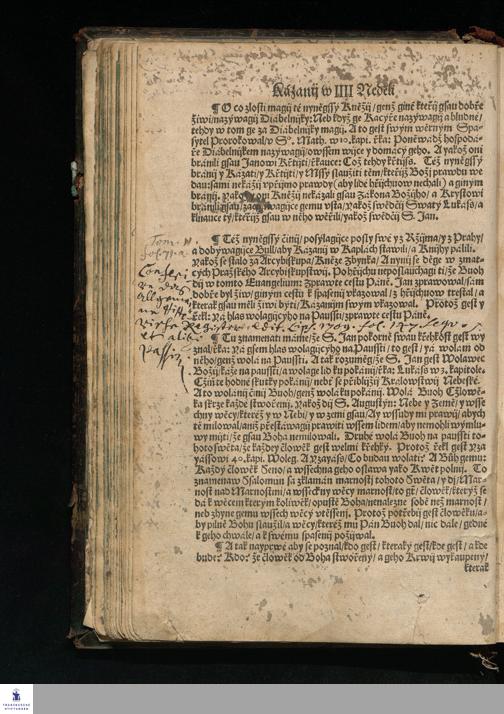 Kázanij w IIII Neděli
¶ O co zlostí magij té nyněgssý Kněžij / genž giné kteřij gsau dobře
žiwi / nazýwagij Diabelnijky: Neb když ge Kacýře nazýwagij a bludné /
tehdy w tom ge za Diábelnijky magij. A to gest swým wěrným Spa-
sytel Prorokowal / w S°. Math. w 10. kapi. řka: Poněwadž hospodá-
ře Diabelnijkem nazýwagij / owssem wijce y domácý geho. A yakož oni
bránili gsau Janowi Křtijti / řkauce: Což tehdy křtijss. Též nyněgssý
bránij y Kázati / y Křtijti / y Mssý slaužiti těm / kteřijž Božij prawdu we
dau: sami nekážij vpřijmo prawdy (aby lidé hřijchuow nechali) a giným
bránij. Yakož oni Kněžij nekázali gsau Zákona Božijho / a Krystowi
bránili gsau / zacpáwagijce gemu vsta / yakož swědčij Swatý Lukáss / a
klnauce tý / kteřijž gsau w něho wěřili / yakož swědčij S. Jan.
¶ Též nyněgssý činij / posýlagijce posly swé y z Ržijma / y z Prahy /
a dobýwagijce Bull / aby Kázanij w Kaplách stawili / a Knijhy pálili.
Yakož se stalo za Arcybiskupa / Kněze Zbyňka / A nynij se děge w zmat-
cých Pražského Arcybiskupstwij. Po hřijchu neposlauchagi ti / že Buoh
dij w tomto Euangelium: Zprawte cestu Páně. Jan zprawowal / sám
dobře byl žiw / giným cestu k spasenij vkazowal / z hřijchuow trestal / a
kterak gsau měli žiwi býti / Kázanijm swým vkazowal. Protož gest y
řekl: Yá hlas wolagijcýho na Paussti / zprawte cestu Páně.
¶ Tu znamenati máme / že S. Jan pokorně swau křehkost gest wy
znal / řka: Yá gsem hlas wolagijcýho na Paussti / to gest / ya wolám od
něho / genž wolá na Paussti. A tak rozuměg / že S. Jan gest Wolawec
Božij / káže na paussti / a wolage lid ku pokánij / řka: Lukáss w 3. kapitole.
Cžiňte hodné skutky pokánij / nebť se přiblijžij Kralowstwij Nebeské.
A to wolánij činij Buoh / genž wolá ku pokánij. Wolá Buoh Cžlowě-
ka skrze každé stwořenij. Yakož dij S. Augustýn: Nebe y Země / y wsse
chny wěcý / kteréž y w Nebi / y w zemi gsau / Ay wssudy mi prawij / abych
tě milowal / aniž přestáwagij prawiti wssem lidem / aby nemohli wýmlu-
wy mijti / že gsau Boha nemilowali. Druhé wolá Buoh na paussti to-
hoto swěta / že každey člowěk gest welmi křehký. Protož řekl gest Yza
yássowi 40. kapi. Woleg. A Yzayáss / Co budau wolati? A Bůh gemu:
Každý člowěk Seno / a wssechna geho oslawa yako Kwět polnij. To
znamenaw Ssalomun sa zklamán marnostij tohoto Swěta / y dij / Mar-
nost nad Marnostmi / a wsseckny wěcý marnost / to gť / člowěk / kterýž se
dá k wěcem kterým koliwěk / opustě Boha / nenalezne sobě než marnost /
neb zhyne gemu wssech wěcý vtěssenij. Protož potřebij gest člowěku / a-
by pilně Bohu slaužil / a wěcý / kteréž mu Pán Buoh dal / nic dále / gedné
k geho chwále / a k swému spasenij požijwal.
¶ A tak nayprwé aby se poznal / kdo gest / kteraký gest / kde gest / a kde
bude. Kdo: že člowěk od Boha stwořený / a geho Krwij wykaupený /
kterak